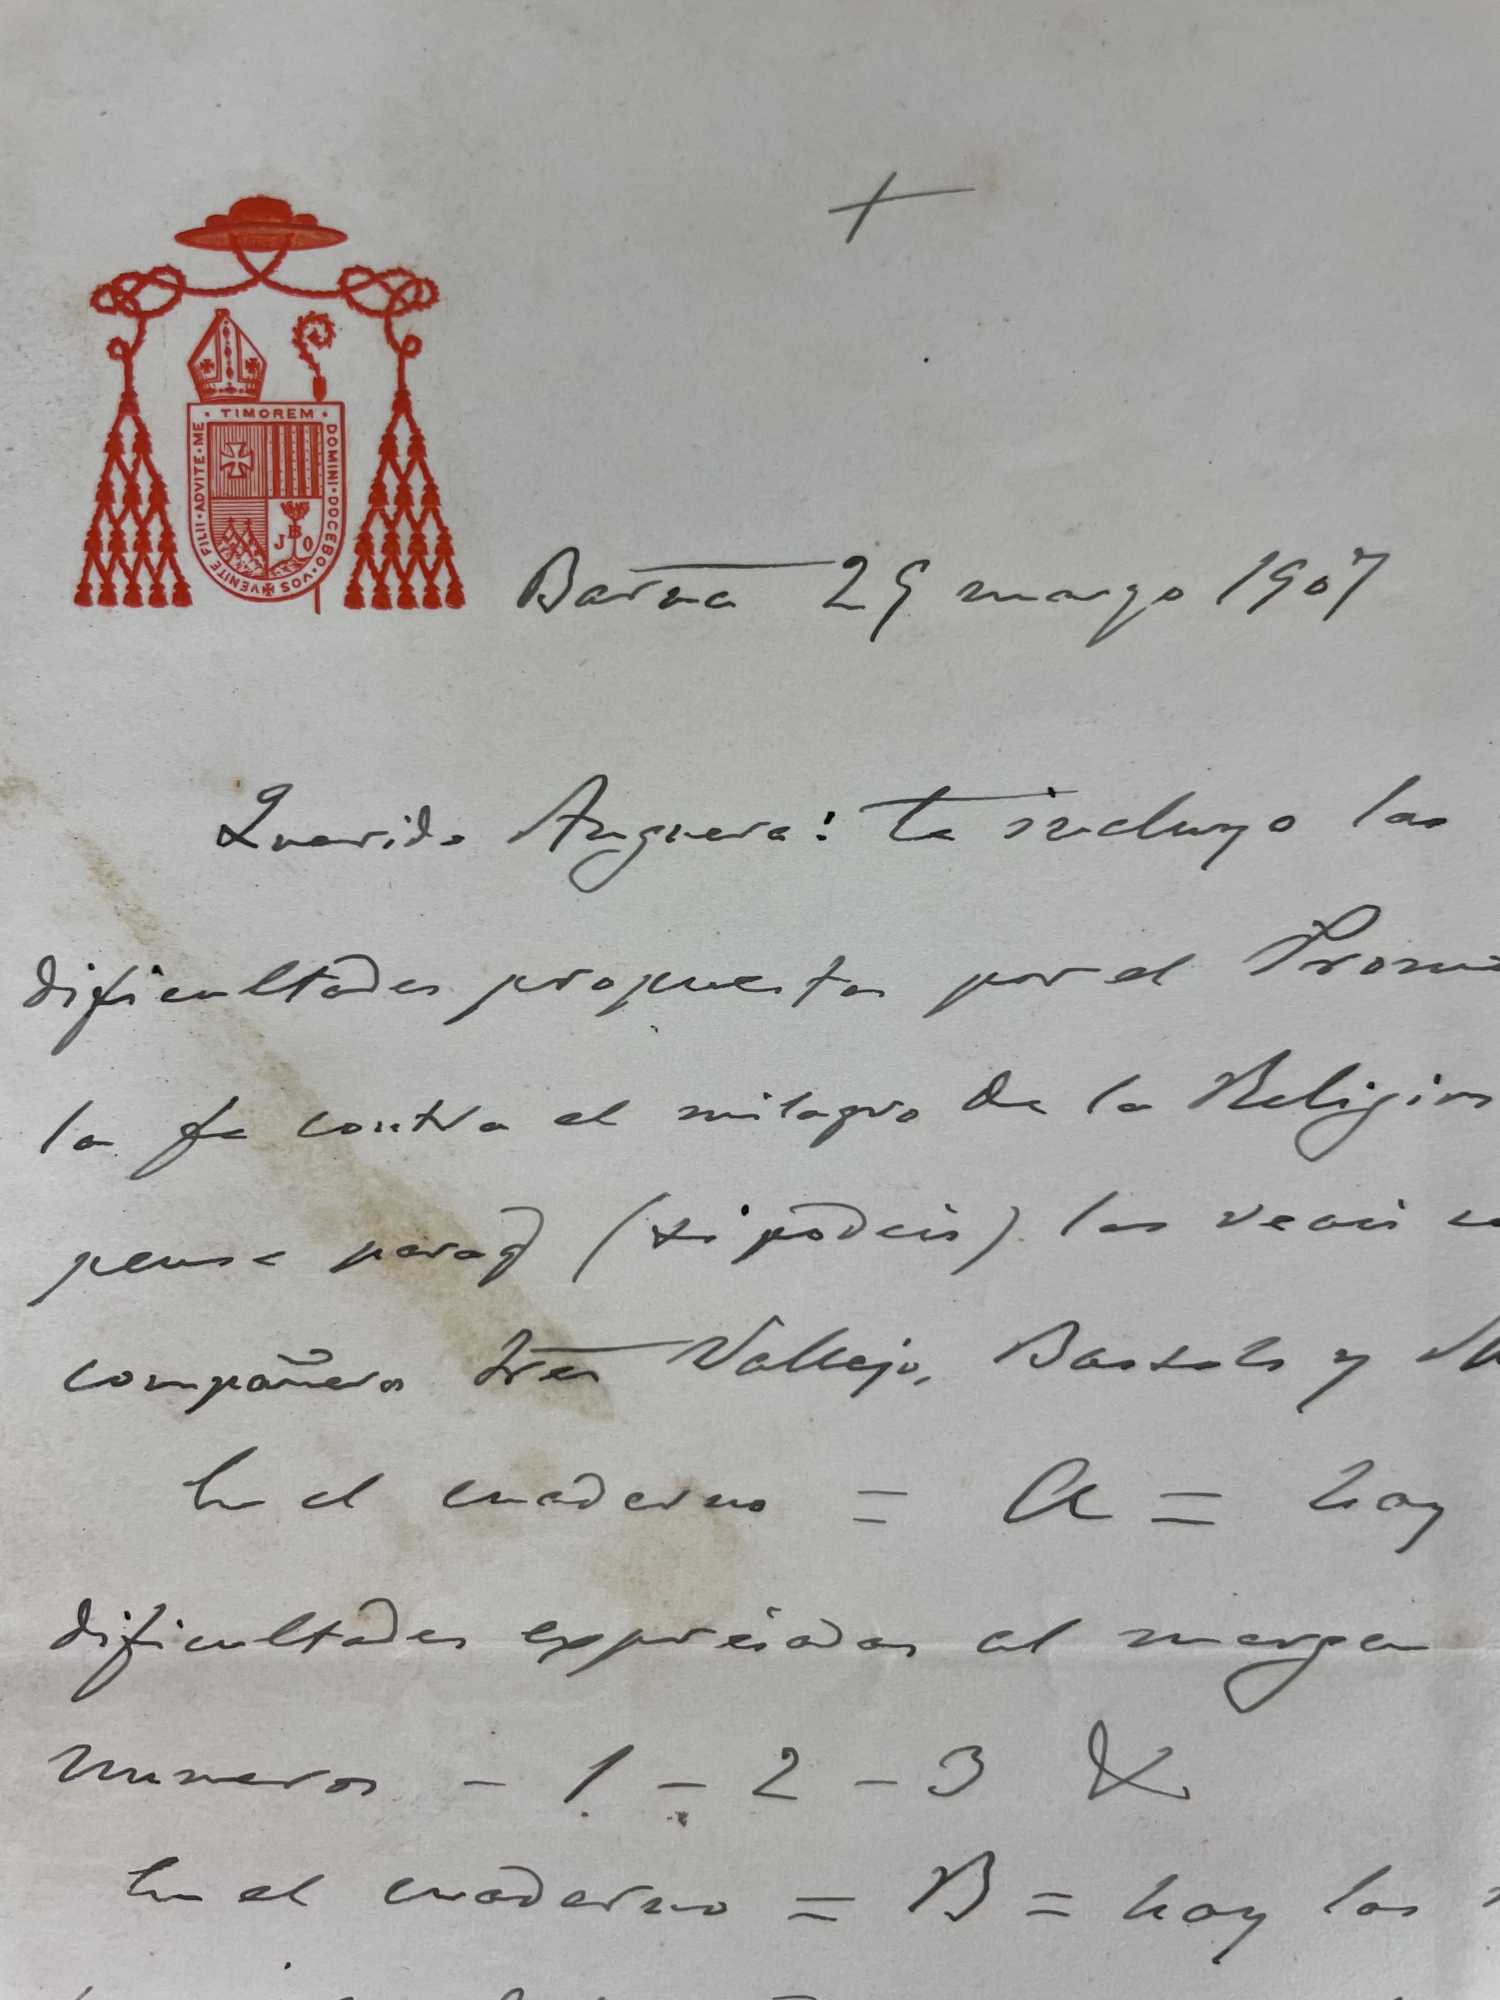 +
· TIMOREM · DOMINI · DOCEBO · VOS ✠ VENITE FILII · ADVITE · ME
J B O
Barna 29 marzo 1907
Querido Anguera: te incluyo las
dificultades propuestas por el
la fe contra el milagro de la
pense paraq (si podeis) las veais
compañeros tres Vallejo, y
En el cuaderno = A = hay
dificultades expresadas al margen
numeros - 1 - 2 - 3 &
En el cuaderno = B = hay las